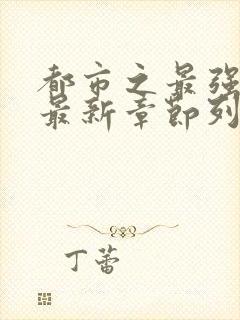 都市之最强
最新章节列
丁蕾